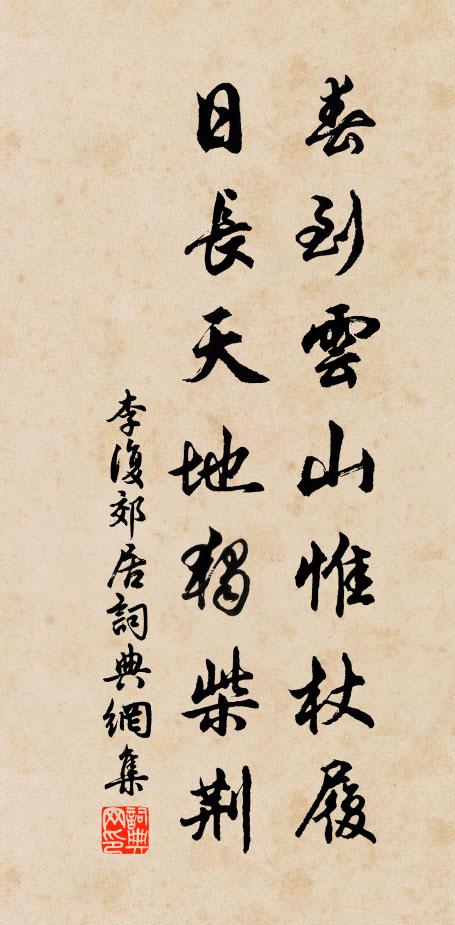 春到雲山惟杖履
日長天地獨柴荆
李復郊居詞典網集
詞典网印